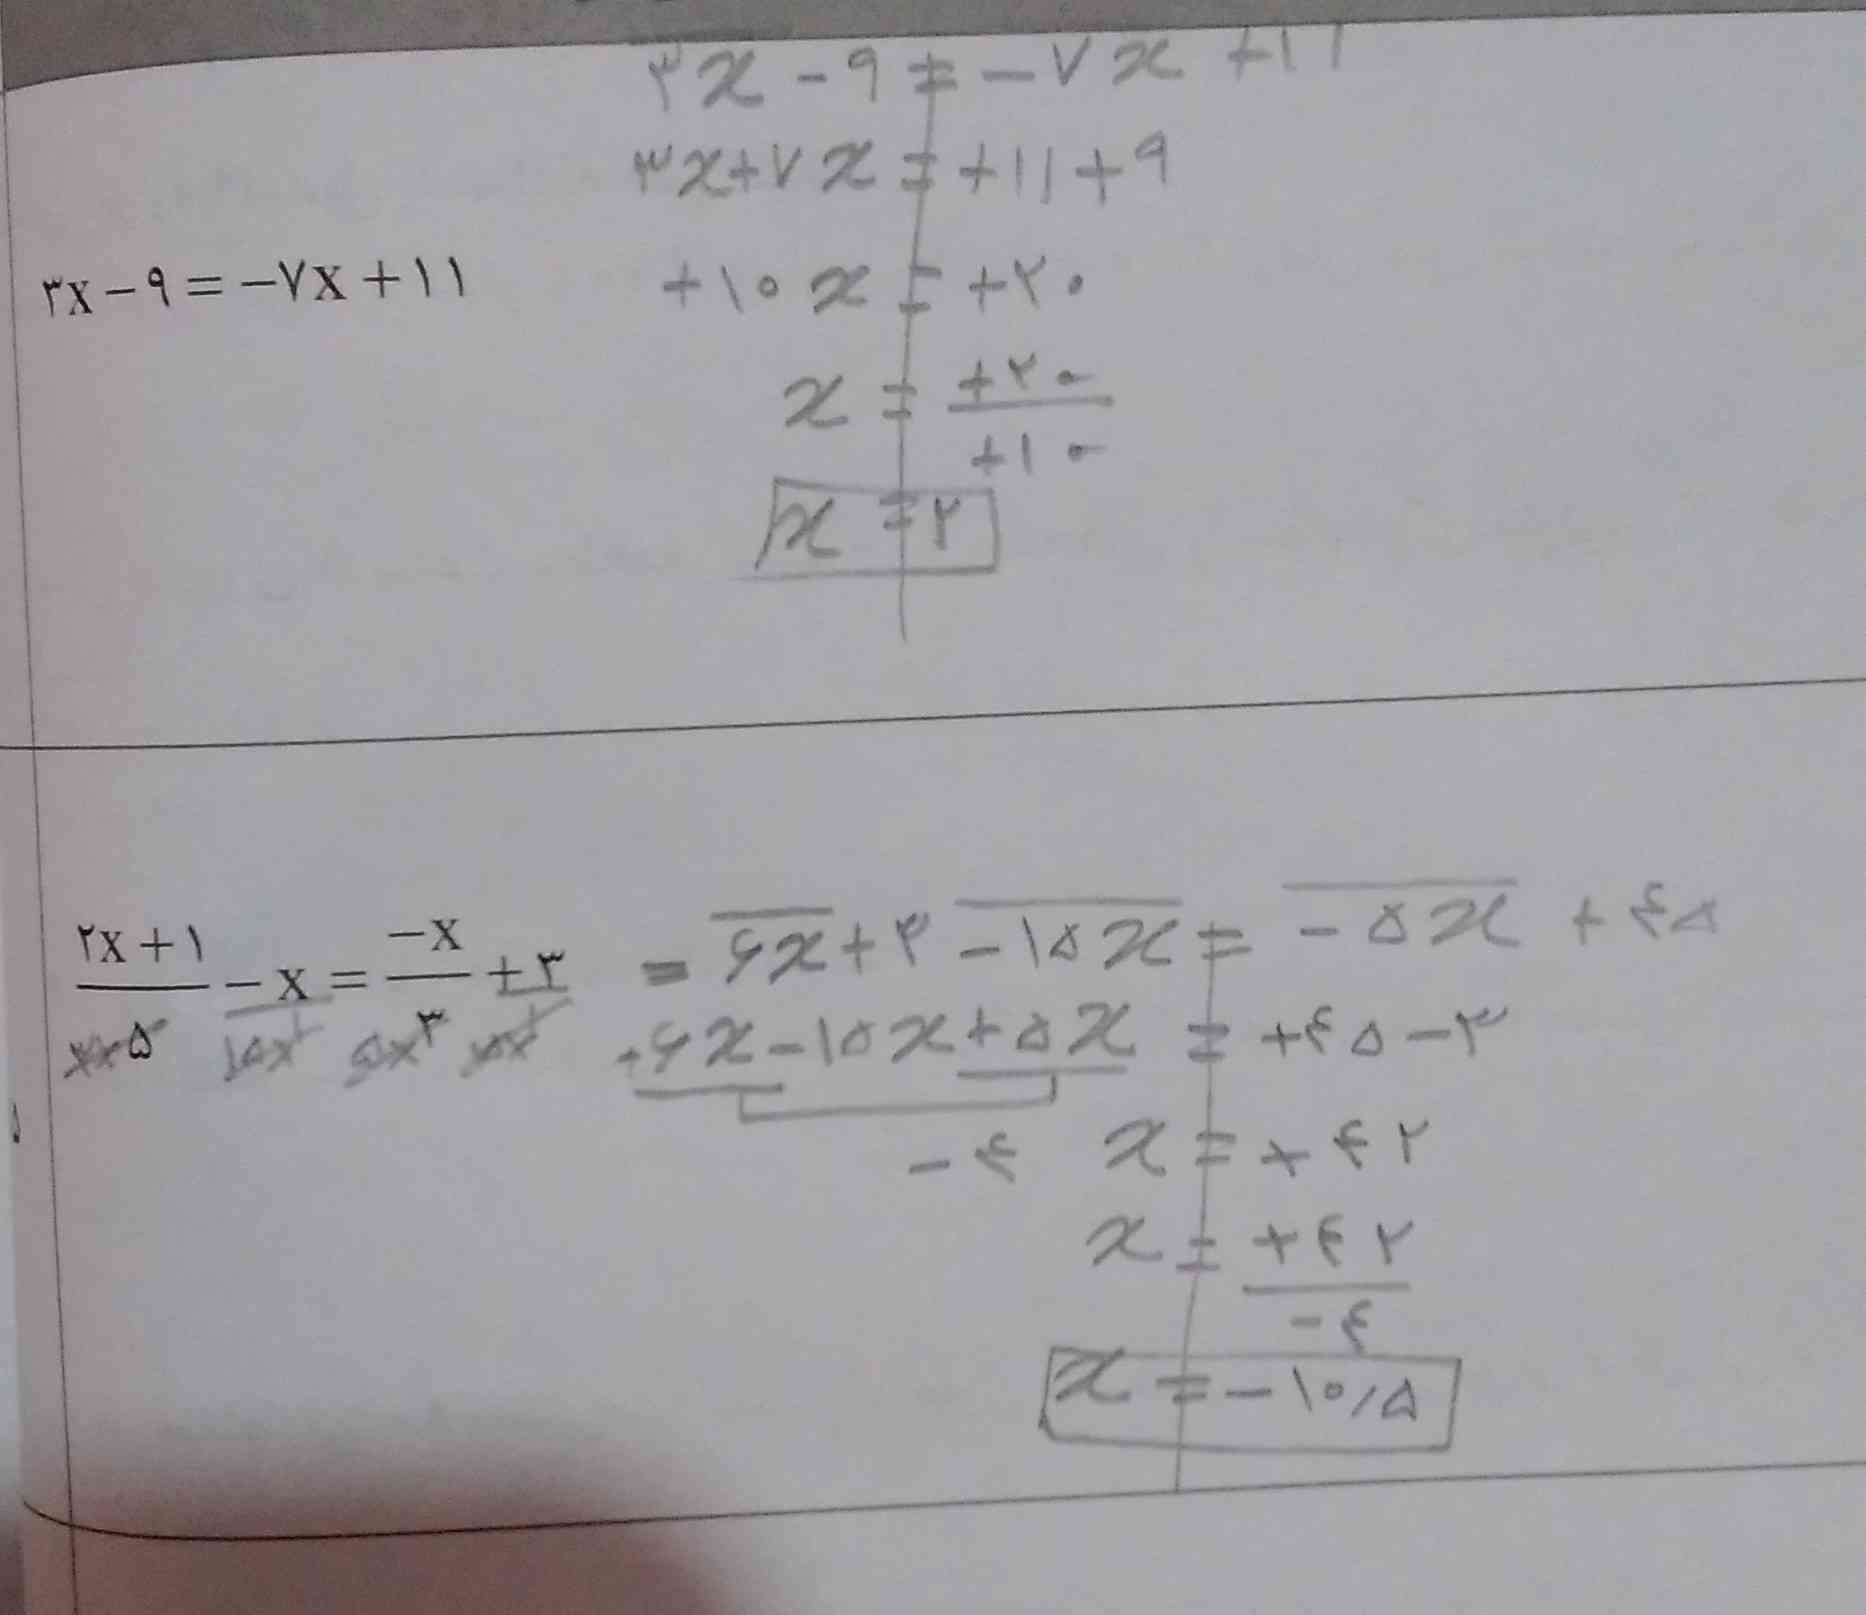 ۳x - ۹ = - ۷x + ۱۱
۳x + ۷x = + ۱۱ + ۹
۳x - ۹ = -۷x + ۱۱
+ ۱۰ x = + ۲۰
x = +۲۰ / +۱۰
x = ۲
(۲x + ۱) / ۵ - x = -x / ۳ + ۳
= ۶x + ۳ - ۱۵x = - ۵x + ۴۵
×۳ ۱۵×۱ ۵×
+۶x - ۱۵x + ۵x = +۴۵ - ۳
-۴ x = + ۴۲
x = +۴۲ / -۴
x = - ۱۰/۵